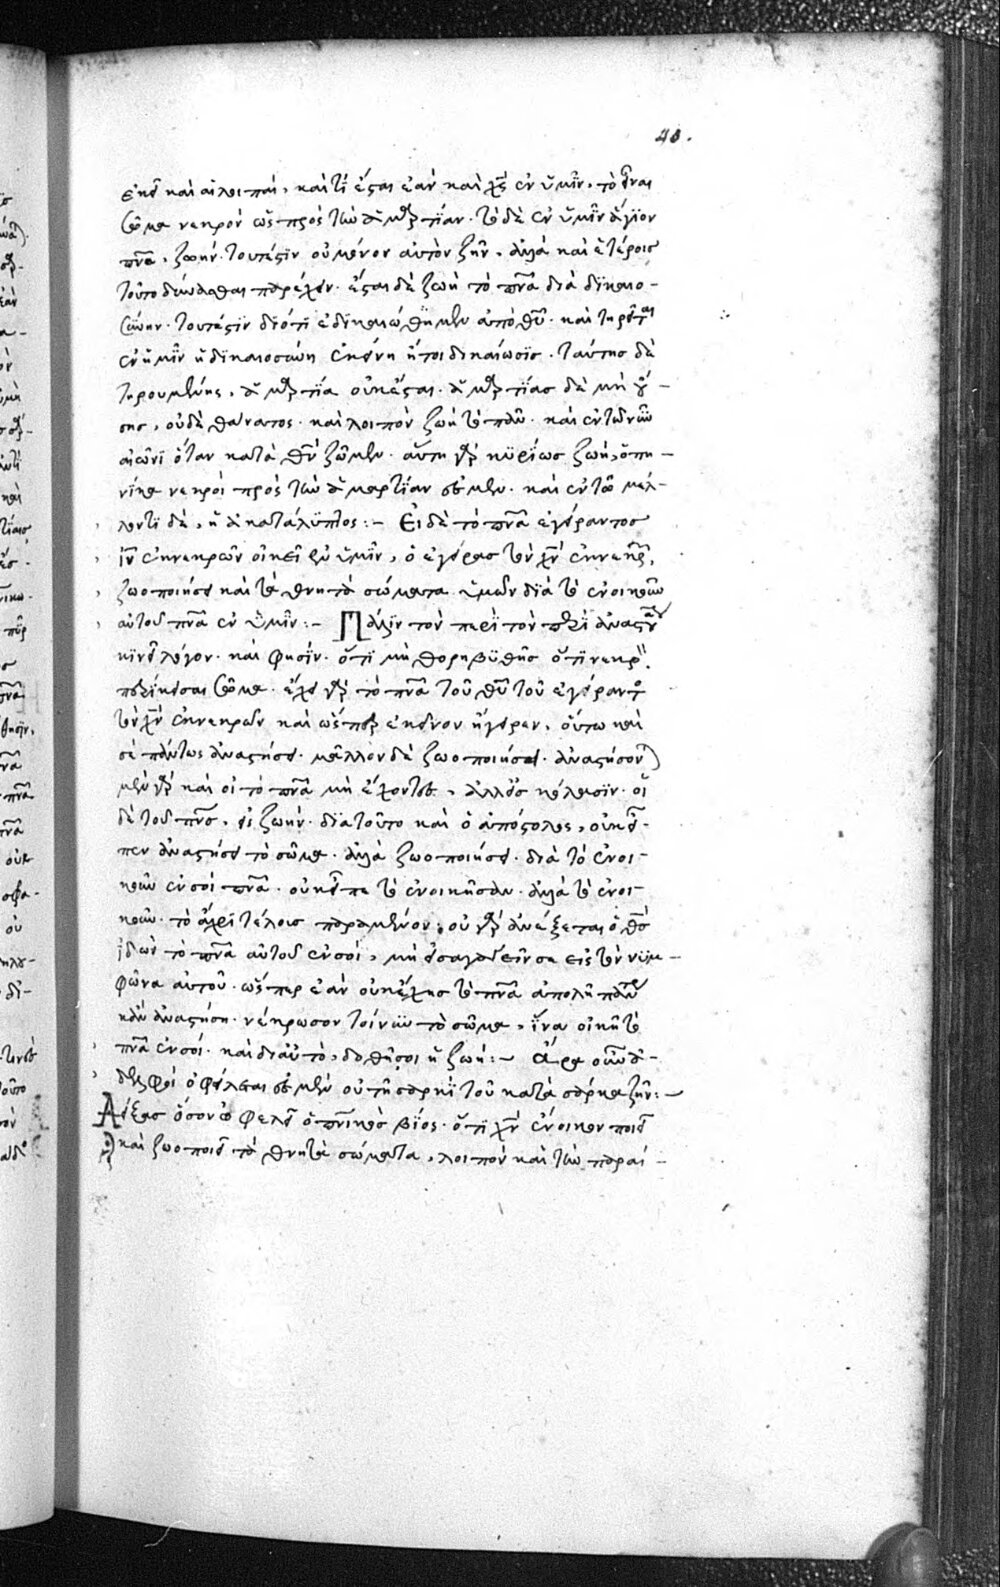 48.
ἐκεῖ καὶ αἱ λοιπαί. καὶ τί ἔσται ἐὰν καὶ χς ἐν ὑμῖν. τὸ εἶναι
σῶμα νεκρὸν ὡς πρὸς τὴν ἁμαρτίαν. τὸ δὲ ἐν ὑμῖν ἅγιον
πνα, ζωήν. τουτέστιν οὐ μόνον αὐτὸν ζῆν, ἀλλὰ καὶ ἑτέροις
τοῦτο δύνασθαι παρέχειν. ἔσται δὲ ζωὴ τὸ πνα διὰ δικαιο-
σύνην. τουτέστιν διότι ἐδικαιώθημεν ἀπὸ θυ. καὶ τηρεῖται
ἐν ἡμῖν ἡ δικαιοσύνη ἐκείνη ἤτοι δικαίωσις. ταύτης δὲ
τηρουμένης, ἁμαρτία οὐκ ἔσται. ἁμαρτίας δὲ μὴ οὔ-
σης, οὐδὲ θάνατος. καὶ λοιπὸν ζωὴ τὸ πᾶν. καὶ ἐν τῷ νῦν
αἰῶνι ὅταν κατὰ θν ζῶμεν. αὕτη γὰρ κυρίως ζωή, ὅτι η-
νίκα νεκροὶ πρὸς τὴν ἁμαρτίαν ἐσμέν. καὶ ἐν τῷ μέλ-
λοντι δὲ, ἡ ἀκατάλυτος :- Εἰ δὲ τὸ πνα ἐγείραντος
ιν ἐκ νεκρῶν οἰκεῖ ἐν ὑμῖν, ὁ ἐγείρας τὸν χν ἐκ νεκρῶν,
ζωοποιήσει καὶ τὰ θνητὰ σώματα ὑμῶν διὰ τὸ ἐνοικοῦν
αὐτοῦ πνα ἐν ὑμῖν :- Πάλιν τὸν περὶ τὸν περὶ ἀναστάσεως
κινεῖ λόγον. καὶ φησίν. ὅτι μὴ θορηβυθῆς ὅτι νεκρὸν
περίκεισαι σῶμα. ἔχεις γὰρ τὸ πνα τοῦ θυ τοῦ ἐγείραντος
τὸν χν ἐκ νεκρῶν καὶ ὥσπερ ἐκεῖνον ἤγειρεν, οὕτω καὶ
σὲ πάντως ἀναστήσει. μᾶλλον δὲ ζωοποιήσει. ἀναστήσονται
μὲν γὰρ καὶ οἱ τὸ πνα μὴ ἔχοντες, ἀλλ' εἰς κόλασιν. οἱ
δὲ τοῦ πνς, εἰς ζωήν. διὰ τοῦτο καὶ ὁ ἀπόστολος, οὐκ εἶ-
πεν ἀναστήσει τὸ σῶμα. ἀλλὰ ζωοποιήσει. διὰ τὸ ἐνοι-
κοῦν ἐν σοὶ πνα. οὐκ εἶπε τὸ ἐνοικῆσαν. ἀλλὰ τὸ ἐνοι-
κοῦν. τὸ ἄχρι τέλους παραμένον. οὐ γὰρ ἀνέξεται ὁ θς
ἰδὼν τὸ πνα αὐτοῦ ἐν σοὶ, μὴ εἰσαγαγεῖν σε εἰς τὸν νυμ-
φῶνα αὐτοῦ. ὥσπερ ἐὰν οὐκ ἔχης τὸ πνα ἀπολῆ πάντως
κἂν ἀναστήση. νέκρωσον τοίνυν τὸ σῶμα, ἵνα οἰκῆ τὸ
πνα ἐν σοί. καὶ δι' αὐτὸ, δοθῆ σοι ἡ ζωή :- Ἄρα οὖν ἀ-
δελφοὶ ὀφειλέται ἐσμὲν οὐ τῆ σαρκὶ τοῦ κατὰ σάρκα ζῆν :-
Δείξας ὅσον ὠφελεῖ ὁ πνικὸς βίος. ὅτι χν ἔνοικον ποιεῖ
καὶ ζωοποιεῖ τὰ θνητὰ σώματα, λοιπὸν καὶ τὴν παραί-